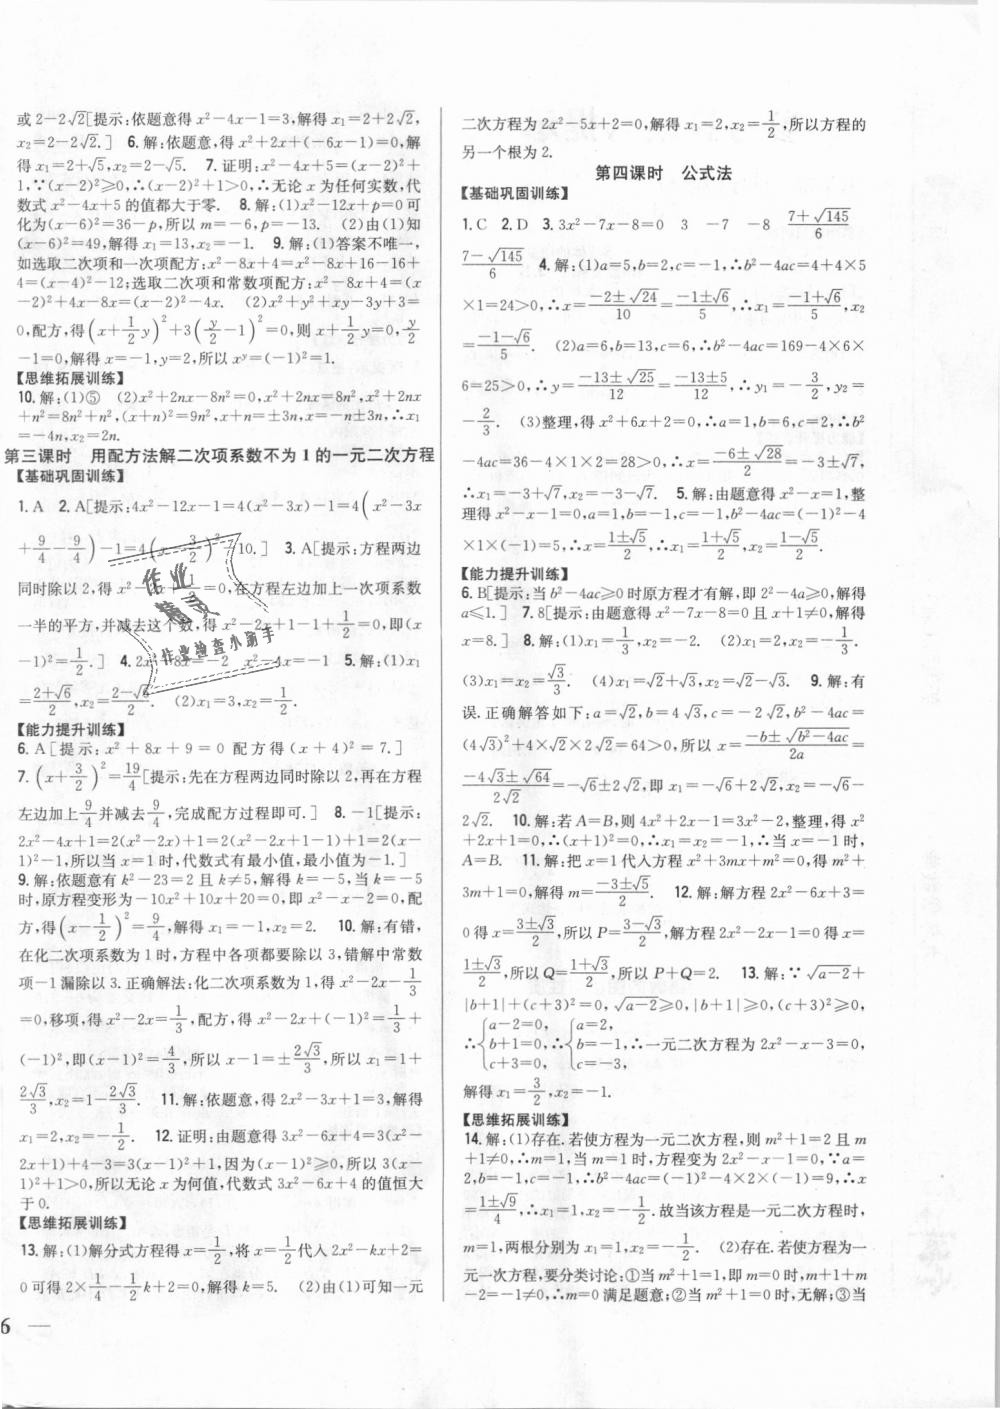 或2-2√2[提示:依题意得x²-4x-1=3,解得x₁=2+2√2,
x₂=2-2√2.] 6.解:依题意,得x²+2x+(-6x-1)=0,解
得x₁=2+√5,x₂=2-√5. 7.证明:x²-4x+5=(x-2)²+
1,∵(x-2)²≥0,∴(x-2)²+1>0,∴无论x为任何实数,代
数式x²-4x+5的值都大于零. 8.解:(1)x²-12x+p=0可
化为(x-6)²=36-p,所以m=-6,p=-13. (2)由(1)知
(x-6)²=49,解得x₁=13,x₂=-1. 9.解:(1)答案不唯一,
如选取二次项和一次项配方:x²-8x+4=x²-8x+16-16+
4=(x-4)²-12;选取二次项和常数项配方:x²-8x+4=(x
-2)²+4x-8x=(x-2)²-4x. (2)x²+y²+xy-3y+3=
0,配方,得(x+1/2y)²+3(y/2-1)²=0,则x+1/2y=0,y/2
-1=0,解得x=-1,y=2,所以xʸ=(-1)²=1.
【思维拓展训练】
10.解:(1)⑤ (2)x²+2nx-8n²=0,x²+2nx=8n²,x²+2nx
+n²=8n²+n²,(x+n)²=9n²,x+n=±3n,x=-n±3n,∴x₁
=-4n,x₂=2n.
第三课时 用配方法解二次项系数不为1的一元二次方程
【基础巩固训练】
1.A 2.A[提示:4x²-12x-1=4(x²-3x)-1=4(x²-3x
+9/4-9/4)-1=4(x-3/2)²-10.] 3.A[提示:方程两边
同时除以2,得x²-2x+1/2=0,在方程左边加上一次项系数
一半的平方,并减去这个数,得x²-2x+1-1+1/2=0,即(x
-1)²=1/2.] 4.2x²-8x=-2 x²-4x=-1 5.解:(1)x₁
=(2+√6)/2,x₂=(2-√6)/2. (2)x₁=3,x₂=-1/2.
【能力提升训练】
6.A[提示:x²+8x+9=0 配方得(x+4)²=7.]
7.(x+3/2)²=19/4[提示:先在方程两边同时除以2,再在方程
左边加上9/4并减去9/4,完成配方过程即可.] 8.-1[提示:
2x²-4x+1=2(x²-2x)+1=2(x²-2x+1-1)+1=2(x-
1)²-1,所以当x=1时,代数式有最小值,最小值为-1.]
9.解:依题意有k²-23=2且k≠5,解得k=-5,当k=-5
时,原方程变形为-10x²+10x+20=0,即x²-x-2=0,配
方,得(x-1/2)²=9/4,解得x₁=-1,x₂=2. 10.解:有错,
在化二次项系数为1时,方程中各项都要除以3,错解中常数
项-1漏除以3.正确解法:化二次项系数为1,得x²-2x-1/3
=0,移项,得x²-2x=1/3,配方,得x²-2x+(-1)²=1/3+
(-1)²,即(x-1)²=4/3,所以x-1=±2√3/3,所以x₁=1+
2√3/3,x₂=1-2√3/3. 11.解:依题意,得2x²-3x+1=3,解得
x₁=2,x₂=-1/2. 12.证明:由题意得3x²-6x+4=3(x²-
2x+1)+4-3=3(x-1)²+1,因为(x-1)²≥0,所以3(x-
1)²+1>0,所以无论x为何值,代数式3x²-6x+4的值恒大
于0.
【思维拓展训练】
13.解:(1)解分式方程得x=1/2,将x=1/2代入2x²-kx+2=
0可得2×1/4-1/2k+2=0,解得k=5. (2)由(1)可知一元
6
二次方程为2x²-5x+2=0,解得x₁=2,x₂=1/2,所以方程的
另一个根为2.
第四课时 公式法
【基础巩固训练】
1.C 2.D 3.3x²-7x-8=0 3 -7 -8 (7+√145)/6
(7-√145)/6 4.解:(1)a=5,b=2,c=-1,∴b²-4ac=4+4×5
×1=24>0,∴x=(-2±√24)/10=(-1±√6)/5,∴x₁=(-1+√6)/5,x₂
=(-1-√6)/5. (2)a=6,b=13,c=6,∴b²-4ac=169-4×6×
6=25>0,∴y=(-13±√25)/12=(-13±5)/12,∴y₁=-3/2,y₂=
-2/3. (3)整理,得x²+6x+2=0,∴a=1,b=6,c=2,∴b²
-4ac=36-4×1×2=28>0,∴x=(-6±√28)/2=-3±√7,
∴x₁=-3+√7,x₂=-3-√7. 5.解:由题意得x²-x=1,整
理得x²-x-1=0,a=1,b=-1,c=-1,b²-4ac=(-1)²-4
×1×(-1)=5,∴x=(1±√5)/2,∴x₁=(1+√5)/2,x₂=(1-√5)/2.
【能力提升训练】
6.B[提示:当b²-4ac≥0时原方程才有解,即2²-4a≥0,解得
a≤1.] 7.8[提示:由题意得x²-7x-8=0且x+1≠0,解得
x=8.] 8.解:(1)x₁=1/3,x₂=-1. (2)x₁=2,x₂=-1/2.
(3)x₁=x₂=√3/3. (4)x₁=√2+√3,x₂=√2-√3. 9.解:有
误.正确解答如下:a=√2,b=4√3,c=-2√2,b²-4ac=
(4√3)²+4×√2×2√2=64>0,所以x=(-b±√(b²-4ac))/2a=
(-4√3±√64)/2√2=-√6±2√2,即x₁=-√6+2√2,x₂=-√6-
2√2. 10.解:若A=B,则4x²+2x-1=3x²-2,整理,得x²
+2x+1=0,∴(x+1)²=0,∴x₁=x₂=-1,∴当x=-1时,
A=B. 11.解:把x=1代入方程x²+3mx+m²=0,得m²+
3m+1=0,解得m=(-3±√5)/2. 12.解:解方程2x²-6x+3=
0得x=(3±√3)/2,所以P=(3-√3)/2,解方程2x²-2x-1=0得x=
(1±√3)/2,所以Q=(1+√3)/2,所以P+Q=2. 13.解:∵√(a-2)+
|b+1|+(c+3)²=0,√(a-2)≥0,|b+1|≥0,(c+3)²≥0,
∴{a-2=0,b+1=0,c+3=0,∴{a=2,b=-1,c=-3,∴一元二次方程为2x²-x-3=0,
解得x₁=3/2,x₂=-1.
【思维拓展训练】
14.解:(1)存在.若使方程为一元二次方程,则m²+1=2且m
+1≠0,∴m=1,当m=1时,方程变为2x²-x-1=0,∵a=
2,b=-1,c=-1,∴b²-4ac=(-1)²-4×2×(-1)=9,∴x
=(1±√9)/4,∴x₁=1,x₂=-1/2.故当该方程是一元二次方程时,
m=1,两根分别为x₁=1,x₂=-1/2. (2)存在.若使方程为一
元一次方程,要分类讨论:①当m²+1=1,即m=0时,m+1+m
-2=-1≠0,∴m=0满足题意;②当m²+1=0时,无解;③当
作业
精灵
作业检查小助手